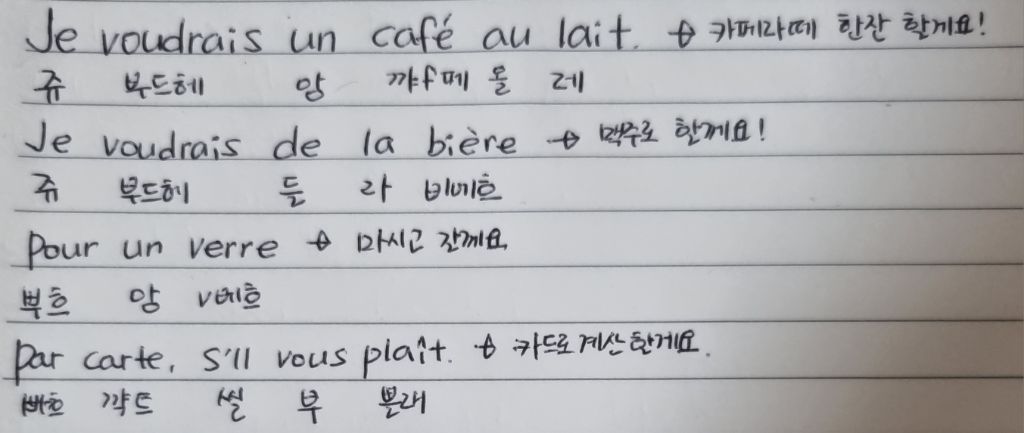 Je voudrais un café au lait. → 카페라떼 한잔 할게요!
쥬 부드헤 앙 꺄f페 올 레
Je voudrais de la bière → 맥주로 할께요!
쥬 부드헤 들 라 비에흐
pour un verre → 마시고 갈께요
뿌흐 앙 v베흐
Par carte, s'll vous plaît. → 카드로 계산할게요.
빠흐 꺅드 씰 부 쁠래